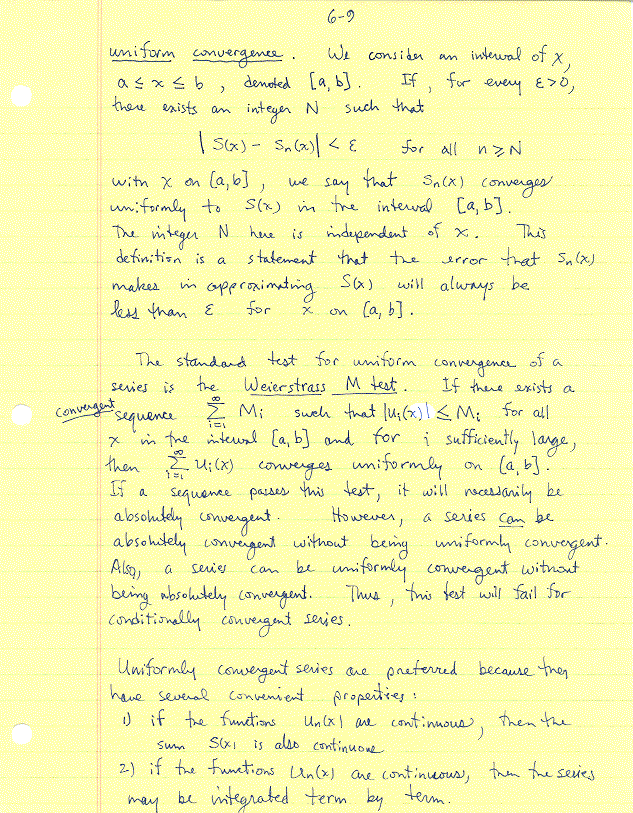 6-9
uniform convergence. We consider an interval of x,
a ≤ x ≤ b, denoted [a,b]. If, for every ε>0,
there exists an integer N such that
|S(x) - Sn(x)| < ε for all n ≥ N
with x on [a,b], we say that Sn(x) converges
uniformly to S(x) in the interval [a,b].
The integer N here is independent of x. This
definition is a statement that the error that Sn(x)
makes in approximating S(x) will always be
less than ε for x on [a,b].
The standard test for uniform convergence of a
series is the Weierstrass M test. If there exists a
convergent sequence ∑_{i=1}^{∞} Mi such that |ui(x)| ≤ Mi for all
x in the interval [a,b] and for i sufficiently large,
then ∑_{i=1}^{∞} ui(x) converges uniformly on [a,b].
If a sequence passes this test, it will necessarily be
absolutely convergent. However, a series can be
absolutely convergent without being uniformly convergent.
Also, a series can be uniformly convergent without
being absolutely convergent. Thus, this test will fail for
conditionally convergent series.
Uniformly convergent series are preferred because they
have several convenient properties:
1) if the functions Un(x) are continuous, then the
sum S(x) is also continuous
2) if the functions Un(x) are continuous, then the series
may be integrated term by term.